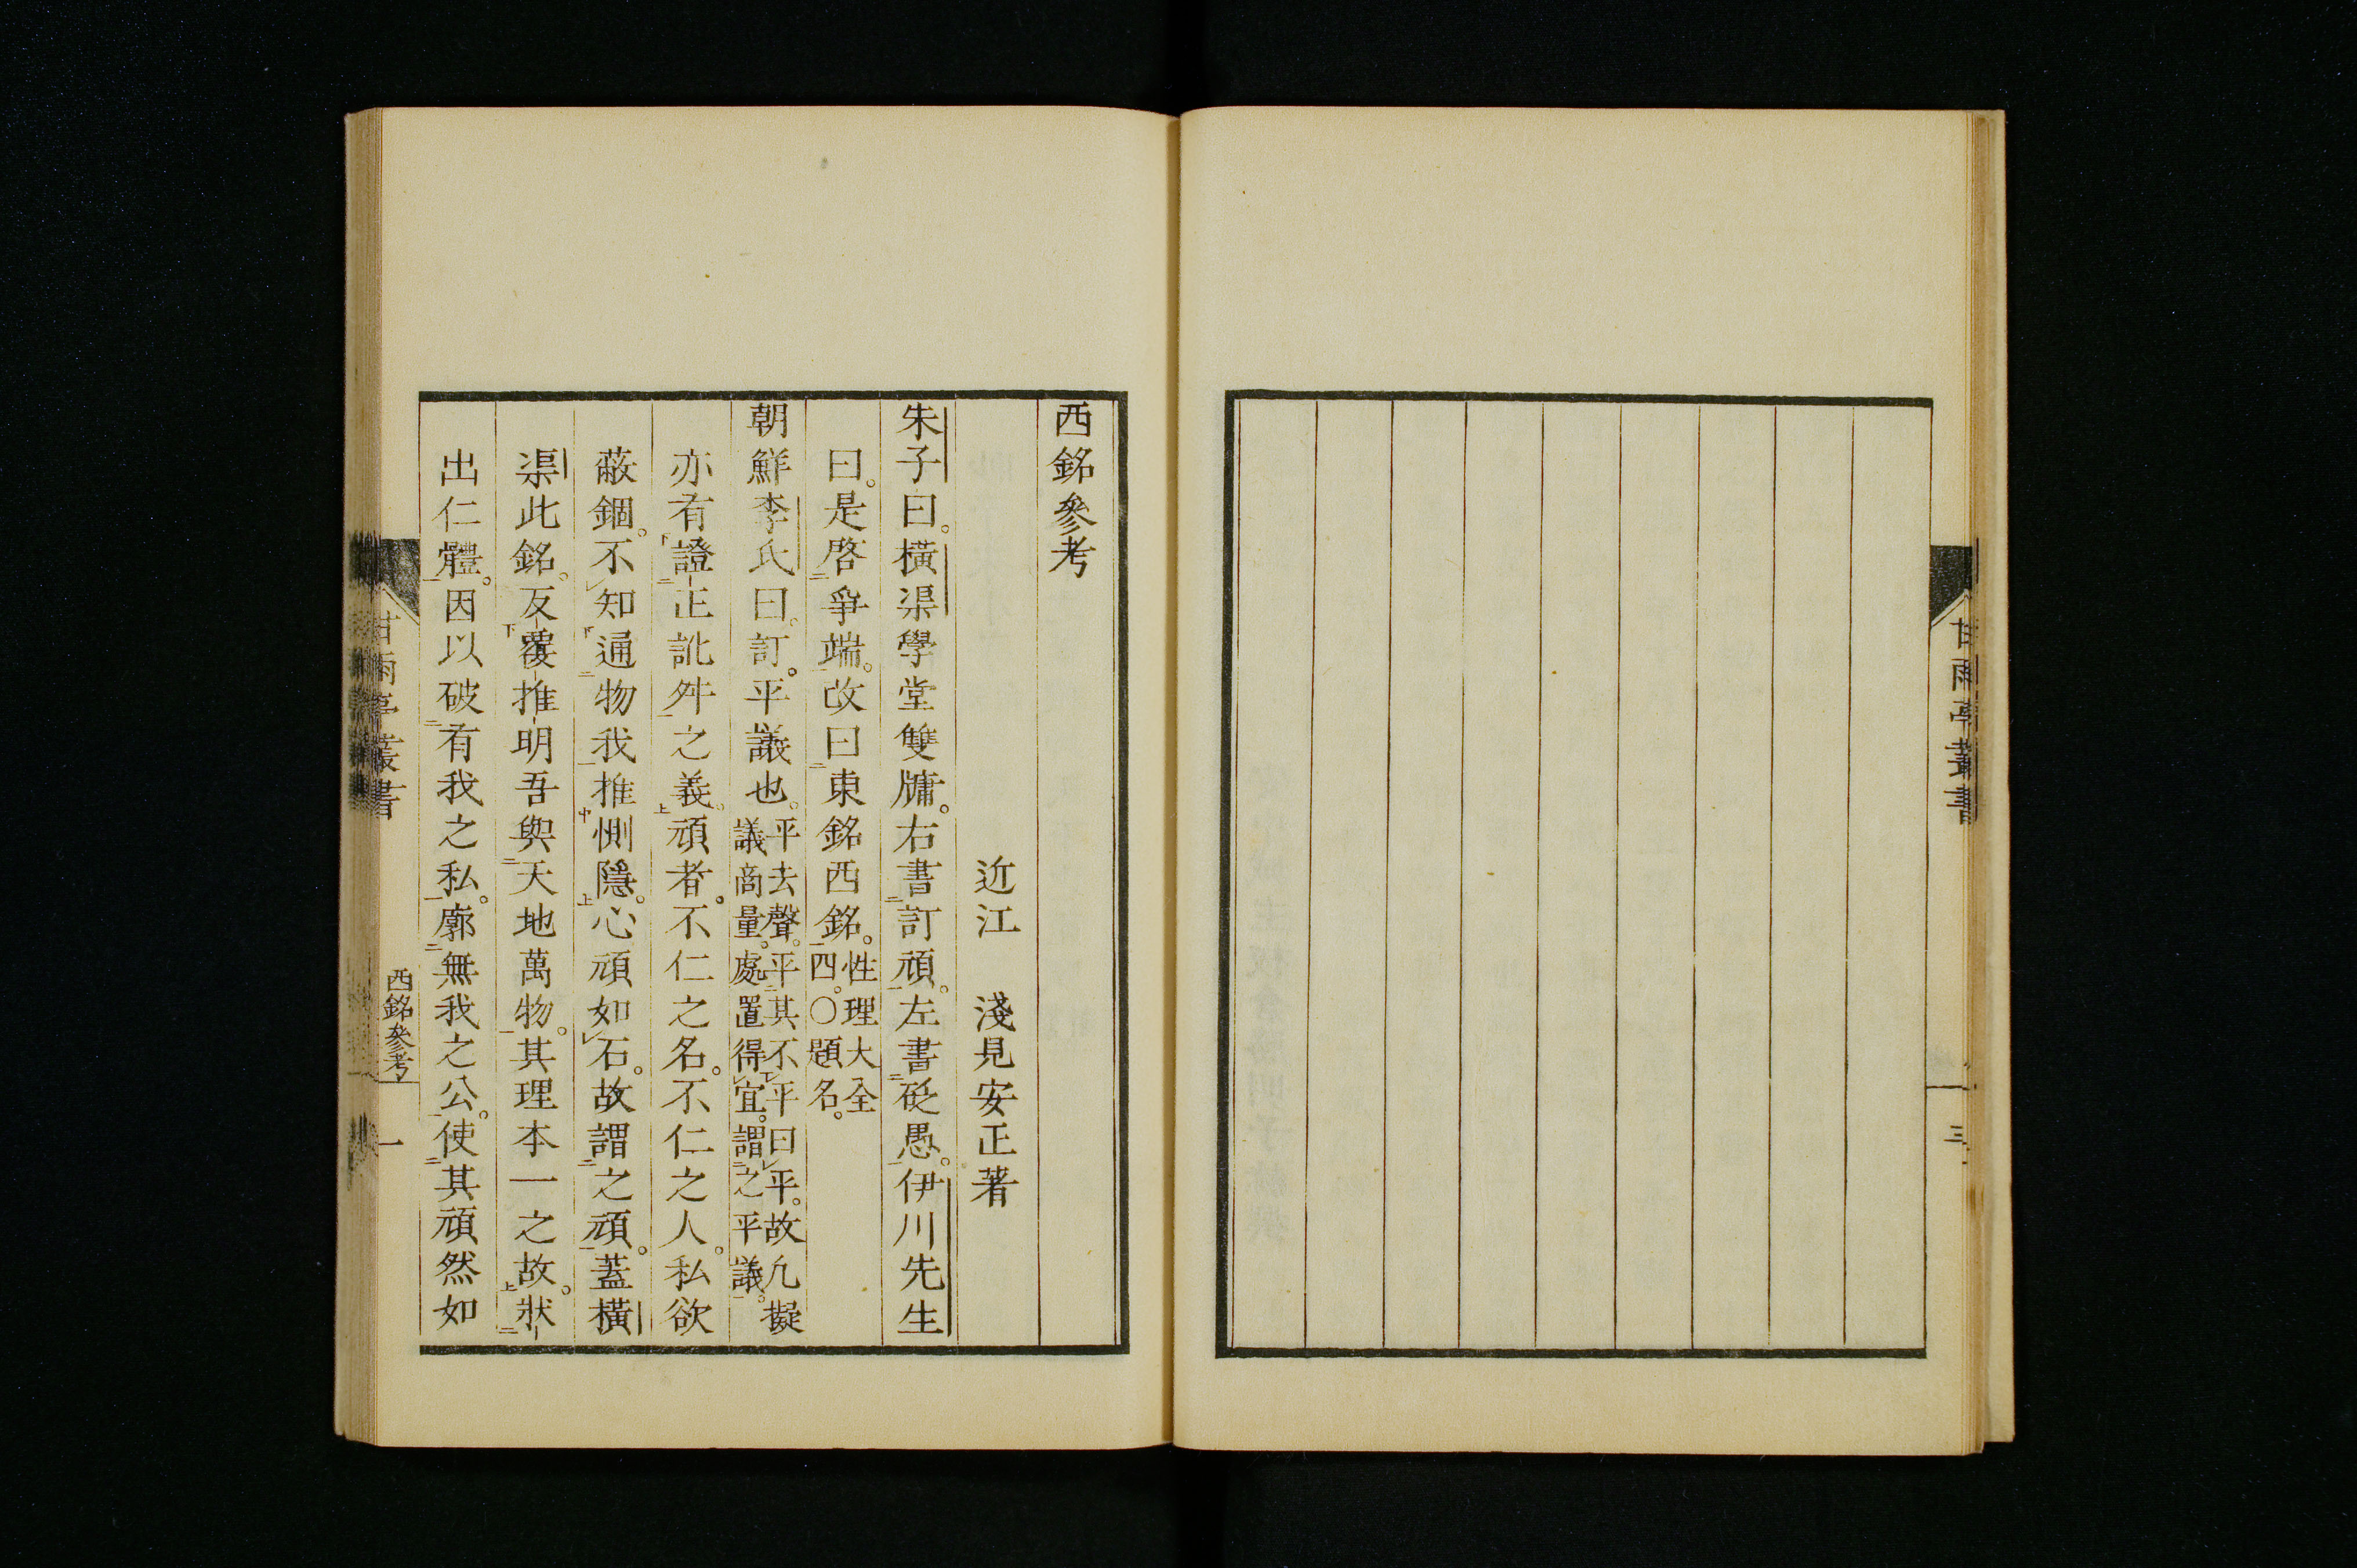 甘雨亭叢書
三
西銘參考
近江　淺見安正著
朱子曰。橫渠學堂雙牗。右書訂頑。左書砭愚。伊川先生
曰。是啓爭端。改曰東銘西銘。性理大全四。〇題名。
朝鮮李氏曰。訂。平議也。平去聲。平其不平曰平。故凡擬議商量。處置得宜。謂之平議。
亦有證正訛舛之義。頑者。不仁之名。不仁之人。私欲
蔽錮。不知通物我推惻隱。心頑如石。故謂之頑。蓋橫
渠此銘。反覆推明吾與天地萬物。其理本一之故。狀
出仁體。因以破有我之私。廓無我之公。使其頑然如
甘雨亭叢書
西銘參考
一